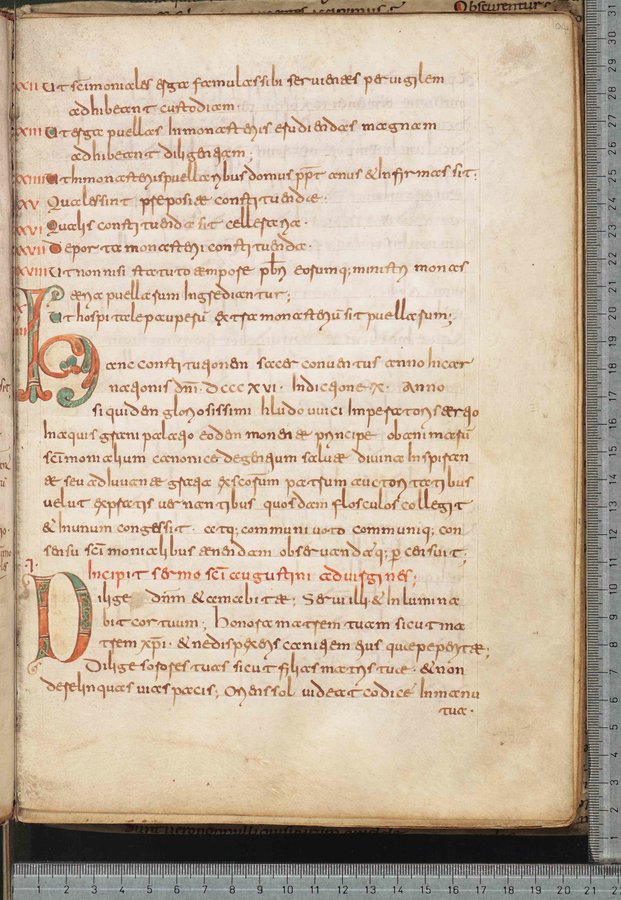 XXII Ut scimoniales erga famulas sibi servientes pervigilem
adhibeant custodiam.
XXIII Ut erga puellas In monasteriis erudiendas magnam
adhibeant diligentiam;
XXIIII Ut In monasteriis puellaribus domus ppt anus & Infirmas sit;
XXV Quales sint preposite constituende.
XXVI Qualis constituenda sit celleraria.
XXVII De porta monasterii constituenda.
XXVIII Ut non nisi statuto tempore pbri eorumq; ministri monas
teria puellarum Ingrediantur;
Ut hospitale pauperum extra monasterium sit puellarum;
Hanc constitutionem sacer conventus anno Incar
nationis dni. DCCCXVI. Indictione X. Anno
siquidem gloriosissimi hludouuici Imperatoris tertio
In aquisgrani palatio eodem monente principe ob animarum
scimonialium canonice degentium salute divina Inspiran
te seu adIuvante gratia ex scorum patrum auctoritatibus
velut ex pratis vernantibus quosdam flosculos collegit
& In unum congessit. atq; communi voto communiq; con
sensu sci monialibus tenendam observandaq; p censuit;
.I. Incipit sermo sci augustini ad virgines;
Dilige dnm & amabit te; Servi illi & Inlumina
bit cor tuum; Honora matrem tuam sicut ma
trem xpi. & ne dispexeris canitiem eius quae peperit te;
Dilige sorores tuas sicut filias matris tue. & non
derelinquas vias pacis; Oriens sol videat codice In manu
tua.